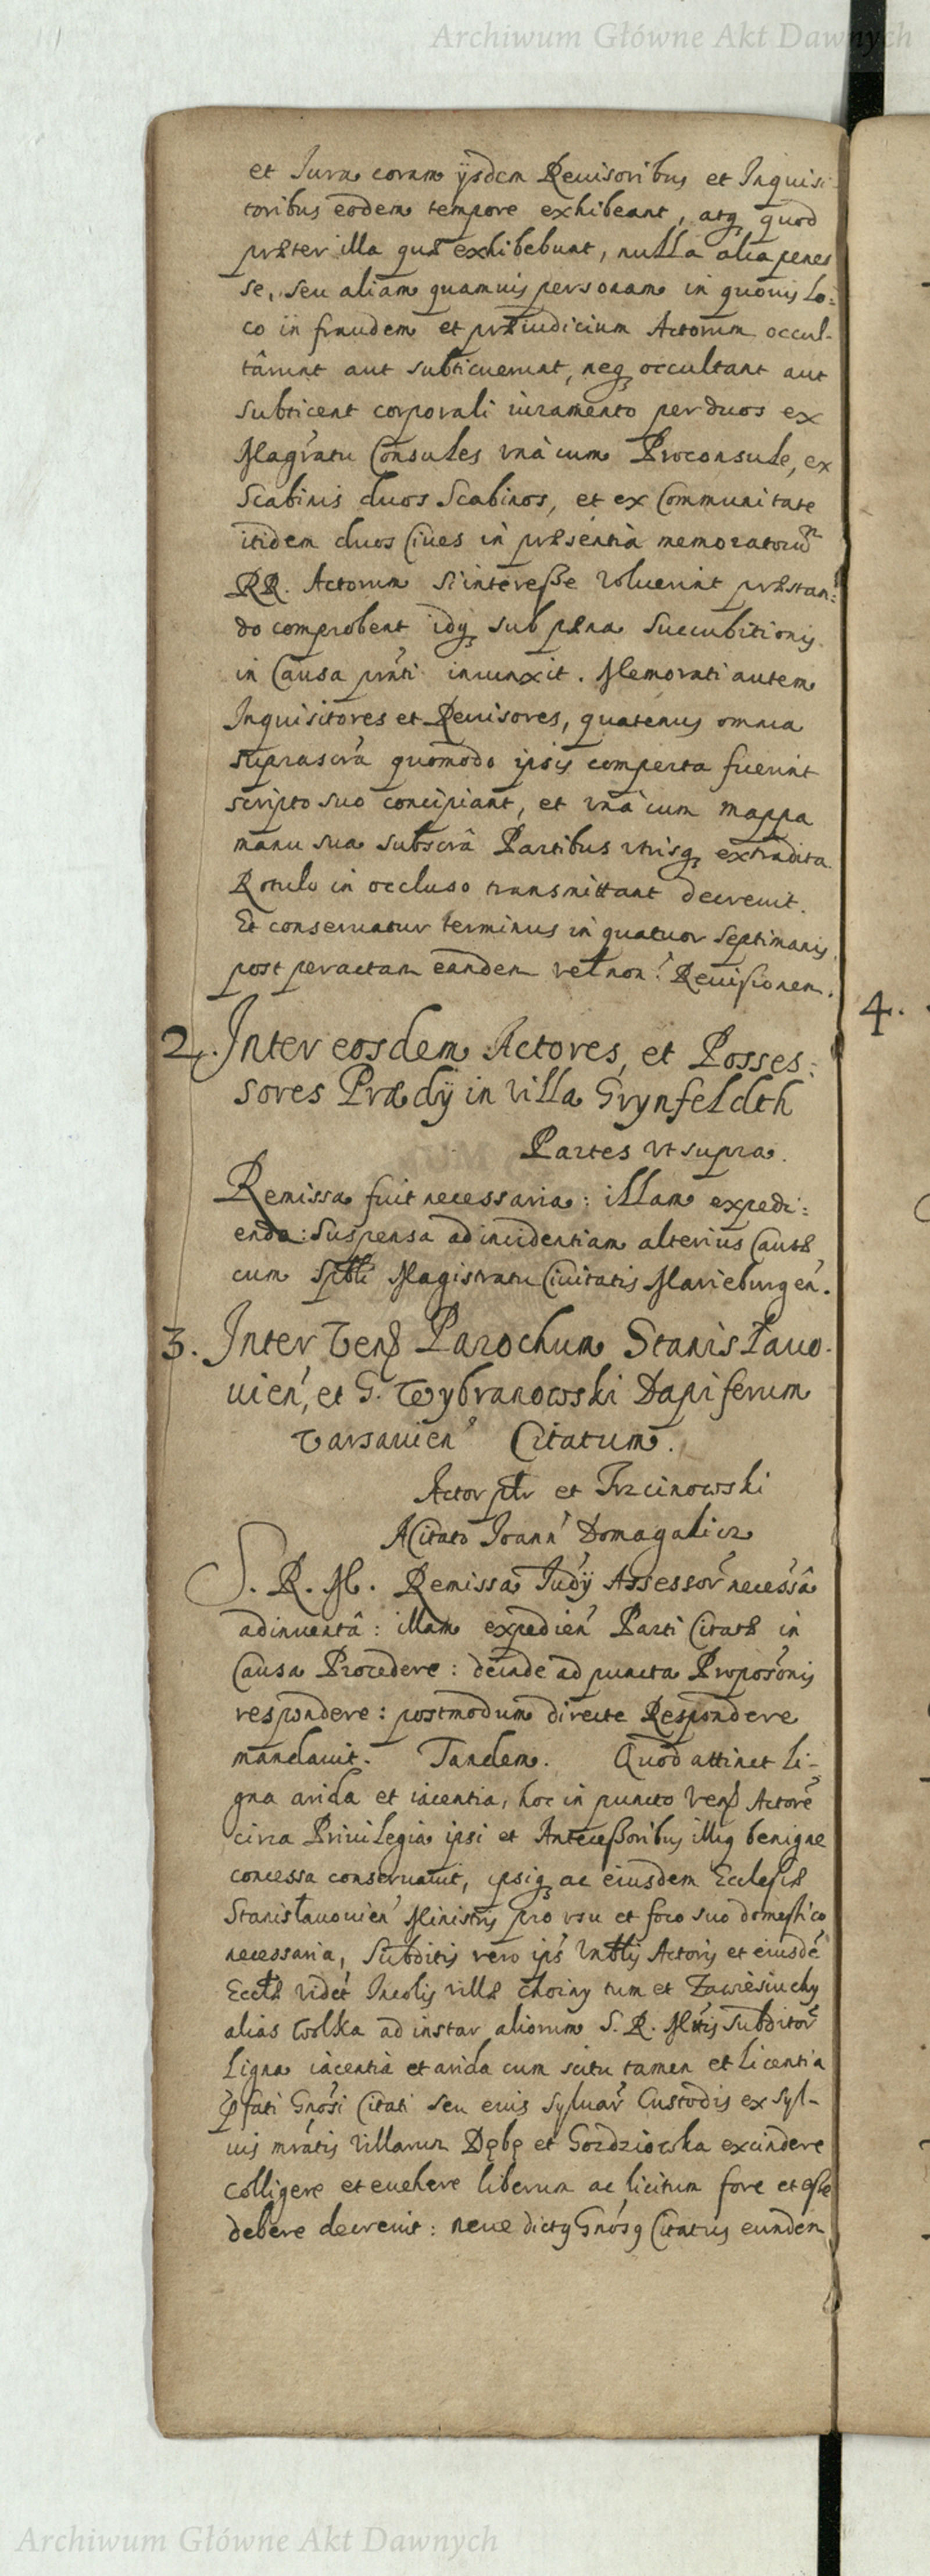 Archiwum Główne Akt Dawnych
et Iura coram ijsdem Reuisoribus et Inquisi
toribus eodem tempore exhibeant, atq; quod
præter illa quæ exhibebunt, nulla alia penes
se, seu aliam quamuis personam in quouis lo:
co in fraudem et præiudicium Actorum occul-
târint aut subticuerint, neq; occultant aut
subticent corporali iuramento per duos ex
Magr̃atu Consules vnà cum Proconsule, ex
Scabinis duos Scabinos, et ex Communitate
itidem duos Ciues in præsentia memoratorũ
RR. Actorum si interesse voluerint præstan:
do comprobent idq; sub pæna Succubitionis
in Causa pñti iniunxit. Memorati autem
Inquisitores et Reuisores, quatenus omnia
suprascrã quomodo ipsis comperta fuerint
scripto suo concipiant, et vnà cum mappa
manu sua subscrã Partibus vtrisq; extradita
Rotulo in occluso transmittant decreuit.
Et conseruatur terminus in quatuor Septimanis
post peractam eandem vel non: Reuisionem.
4.
2. Inter eosdem Actores, et Posses:
sores Prædij in villa Grynfeldth
Partes vt supra.
Remissa fuit necessaria: illam expedi:
endo: Suspensa ad incidentiam alterius Causæ,
cum Sptbli Magistratu Ciuitatis Marieburgeñ.
3. Inter Veñ Parochum Stanisłauo-
uień, et G. Wybranowski Dapiferum
Varsauień Citatum.
Actor ptr et Trzcinowski
A Citato Ioanń Domagalicz
S. R. M. Remissã Iudÿ Assessor necessâ
adinuentâ: illam expedień Parti Citatæ in
Causa Procedere: deinde ad puncta Proposõnis
respondere: postmodum directe Respondere
mandauit. Tandem. Quod attinet li-
gna arida et iacentia, hoc in puncto Veñ Actorẽ
circa Priuilegia ipsi et Antecessoribus illiq benigne
concessa conseruauit, ipsiq; ac eiusdem Ecclesiæ
Stanisłauouień Ministris pro vsu et foco suo domestico
necessaria, Subditis vero ips Vnblis Actoris et eiusdẽ
Eccłæ videt Incolis villæ Choiny tum et Zawiesiuchy
alias Wolka ad instar aliorum S. R. Mttis Subditor
Ligna iacentia et arida cum scitu tamen et licentia
pfati Gnosi Citati seu eius syluar Custodis ex syl-
uis mratis villarum Dębę et Gozdziowka excindere
colligere et euehere liberum ac licitum fore et esse
debere decreuit: neue dictq Gnosq Citatus eundem
Archiwum Główne Akt Dawnych